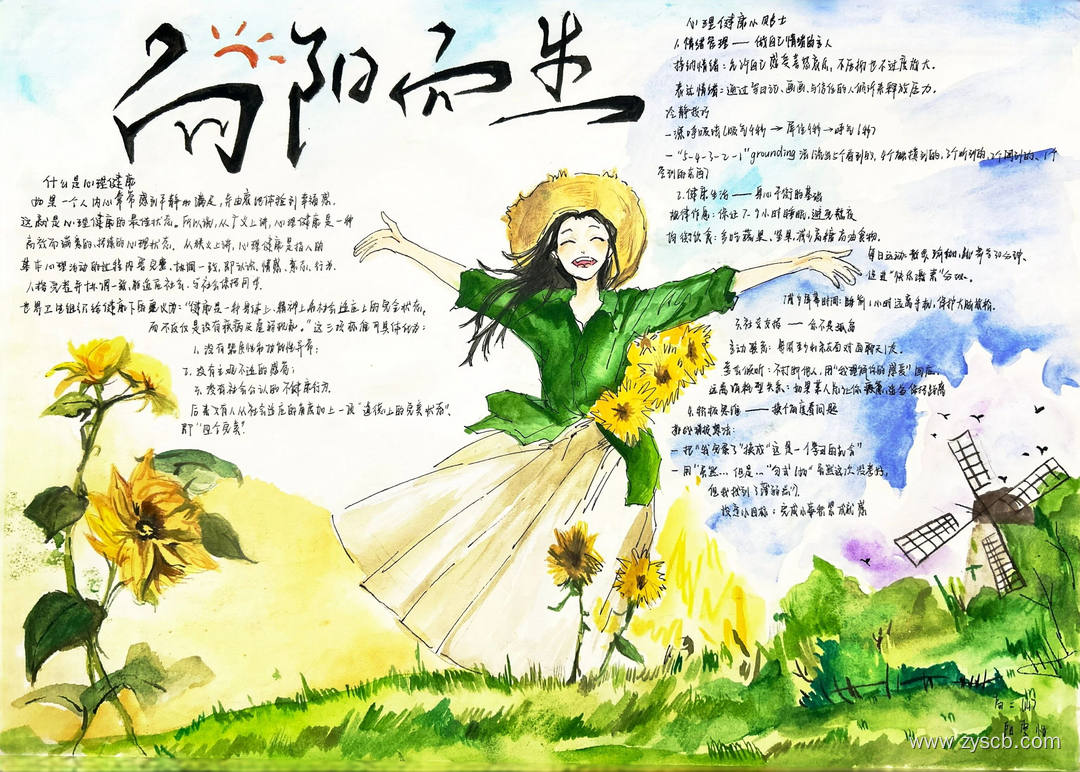 向阳而生
什么是心理健康
如果一个人内心常常感到平静和满足，并由此能体验到幸福感，
这就是心理健康的最佳状态。所以说，从广义上讲，心理健康是一种
高效而满意的、持续的心理状态，从狭义上讲，心理健康是指人的
基本心理活动的过程内容完整、协调一致，即认识、情感、意志、行为、
人格完整和协调，能适应社会，与社会保持同步。
世界卫生组织给健康下的定义为："健康是一种身体上、精神上和社会适应上的完全状态，
而不仅仅是没有疾病及虚弱现象。"这三项标准可具体化为：
1、没有器质性和功能性异常；
2、没有主观不适的感觉；
3、没有社会公认的不健康行为。
后来又有人从社会适应的角度加上一项"道德上的完美状态"，
即"四个完美"。
心理健康小贴士
1.情绪管理——做自己情绪的主人
接纳情绪：允许自己感受喜怒哀乐，不压抑也不过度放大。
表达情绪：通过写日记、画画、与信任的人倾诉来释放压力。
冷静技巧
－深呼吸法(吸气4秒→屏住4秒→呼气6秒)
－"5-4-3-2-1"grounding法(说出5个看到的，4个触摸到的，3个听到的，2个闻到的，1个
尝到的东西)
2.健康生活——身心平衡的基础
规律作息：保证7-9小时睡眠，避免熬夜
均衡饮食：多吃蔬果、坚果，减少高糖高油食物。
每日运动：散步、瑜伽、
促进"快乐激素"分泌。
睡前1小时远离手机，保护大脑
3.社交支持——你不是孤岛
主动联系：每周至少和朋友面对面聊天1次。
善于倾听：不打断他人，用"我理解你的感受"回应。
远离消耗型关系：如果某人总让你疲惫，适当保持距离
4.积极思维——换个角度看问题
－把"我失败了"换成"这是一个学习的机会"
－用"虽然…但是…"句式(如"虽然这次没考好，
但我找到了薄弱点")
设定小目标：完成小任务累积成就感
www.zyscb.com